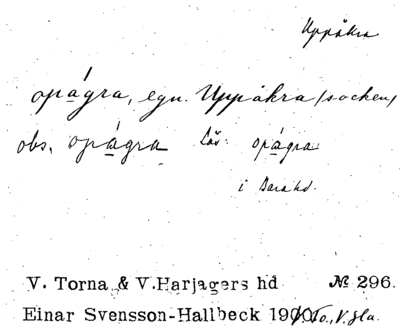 Uppåkra
opágra, egn. Uppåkra (socken)
obs. opágra Läs: opágra
i Bara hd.
V. Torna & V. Harjagers hd № 296.
Einar Svensson-Hallbeck 1900 V. To., V. Ha.